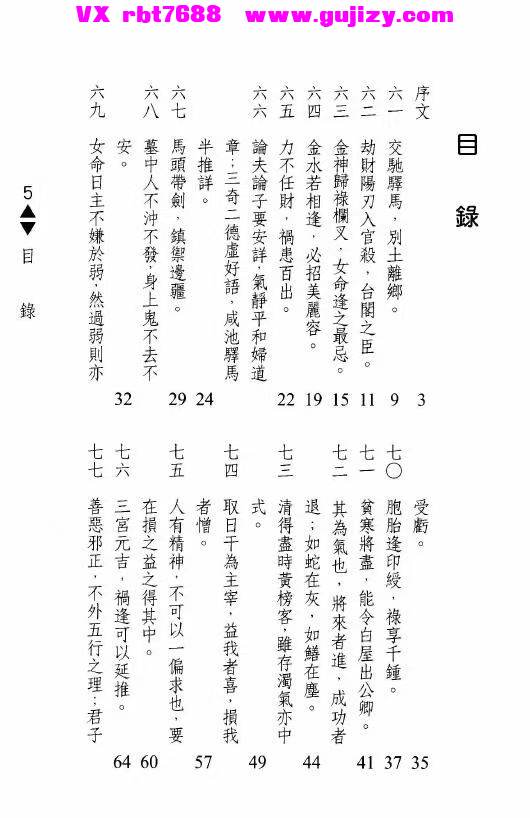 VX rbt7688 www.gujizy.com
目錄
序文 3
六一 交馳驛馬，別土離鄉。 9
六二 劫財陽刃入官殺，台閣之臣。 11
六三 金神歸祿欄叉，女命逢之最忌。 15
六四 金水若相逢，必招美麗容。 19
六五 力不任財，禍患百出。 22
六六 論夫論子要安詳，氣靜平和婦道
章；三奇二德虛好語，咸池驛馬
半推詳。 24
六七 馬頭帶劍，鎮禦邊疆。 29
六八 墓中人不沖不發，身上鬼不去不
安。 32
六九 女命日主不嫌於弱，然過弱則亦
受虧。 35
七〇 胞胎逢印綬，祿享千鍾。 37
七一 貧寒將盡，能令白屋出公卿。 41
七二 其為氣也，將來者進，成功者
退；如蛇在灰，如鱔在塵。 44
七三 清得盡時黃榜客，雖存濁氣亦中
式。 49
七四 取日干為主宰，益我者喜，損我
者憎。 57
七五 人有精神，不可以一偏求也，要
在損之益之得其中。 60
七六 三宮元吉，禍逢可以延推。 64
七七 善惡邪正，不外五行之理；君子
5 目錄